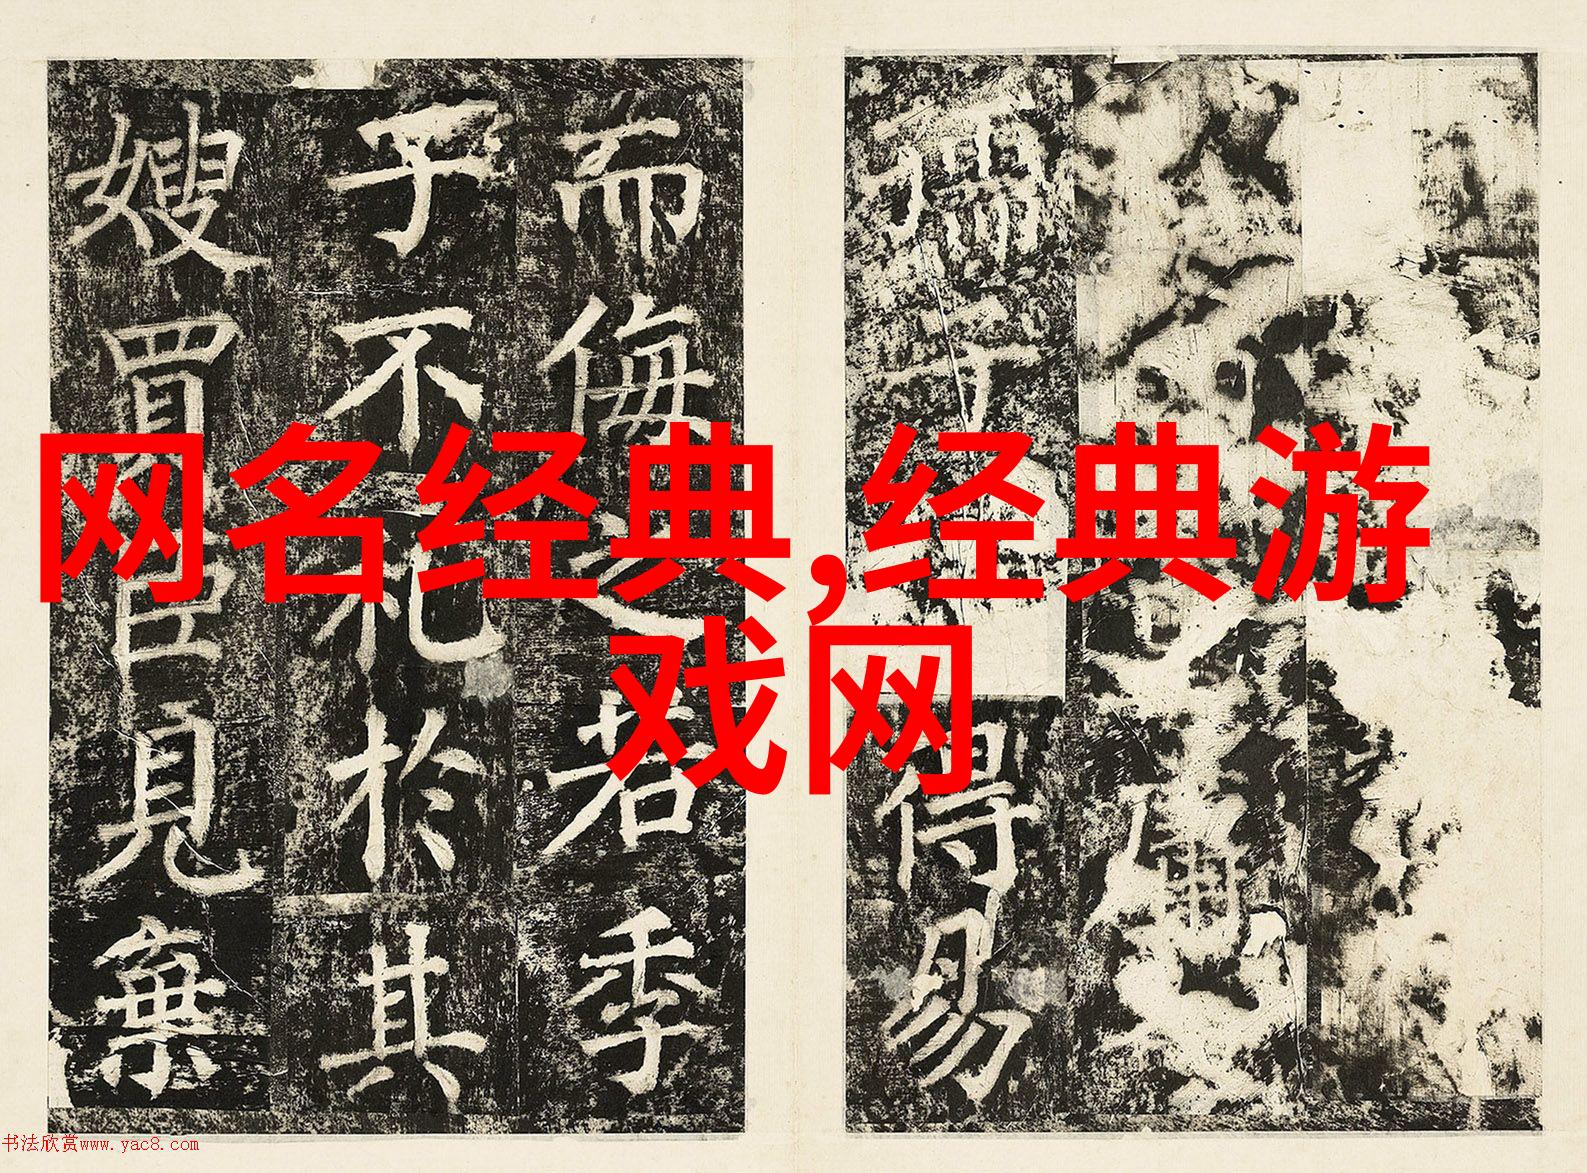 网名经典,经典游
戏网
庸
孺子得易
而侮之若季
子不礼於其
嫂買臣見棄
书法欣赏www.yac8.com